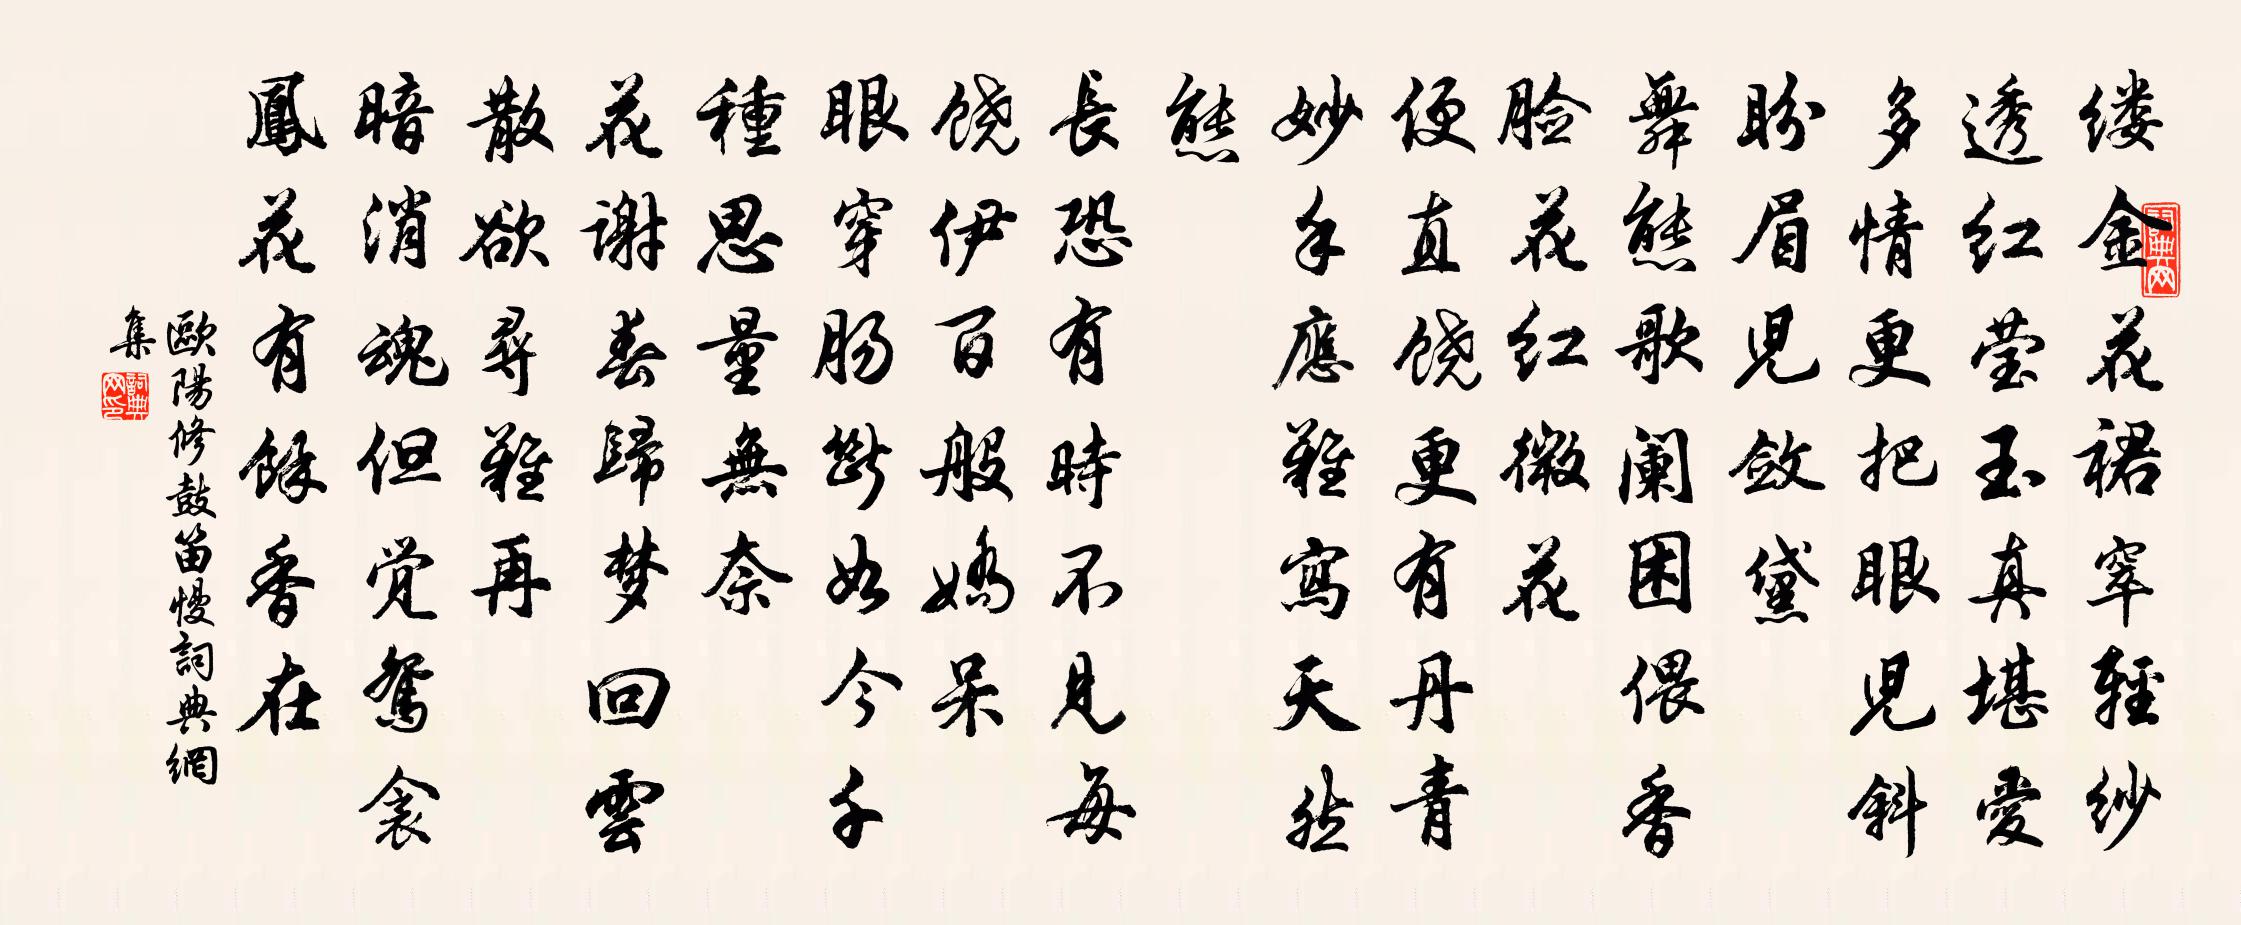 缕金花裙窣輕纱
透红莹玉真堪愛
多情更把眼児斜
盼眉児敛黛
舞態歌阑困偎香
脸花红微花
便直饶更有丹青
妙手應難寫天然
態
長恐有時不見每
饶伊百般嬌呆
眼穿肠斷如今千
種思量無奈
花谢春歸梦回雲
散欲尋難再
暗消魂但觉鴛衾
鳳花有餘香在
歐陽修鼓笛慢詞典網
集
詞典网印